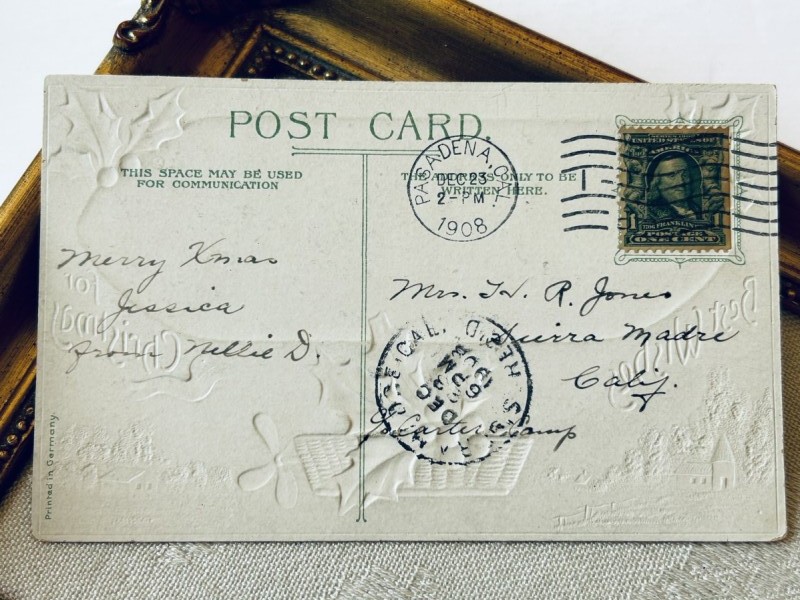 POST CARD.
THIS SPACE MAY BE USED
FOR COMMUNICATION
THE ADDRESS ONLY TO BE
WRITTEN HERE.
PASADENA, CAL.
DEC 23
2-PM
1908
UNITED STATES OF
FRANKLIN
1 1
POSTAGE
ONE CENT
Merry Xmas
Jessica
from Nellie D.
Mrs. H. R. Jones
Sierra Madre
Calif.
Carter Camp
REC'D.
CAL.
DEC
1908
Best Wishes
for
Christmas
Printed in Germany.